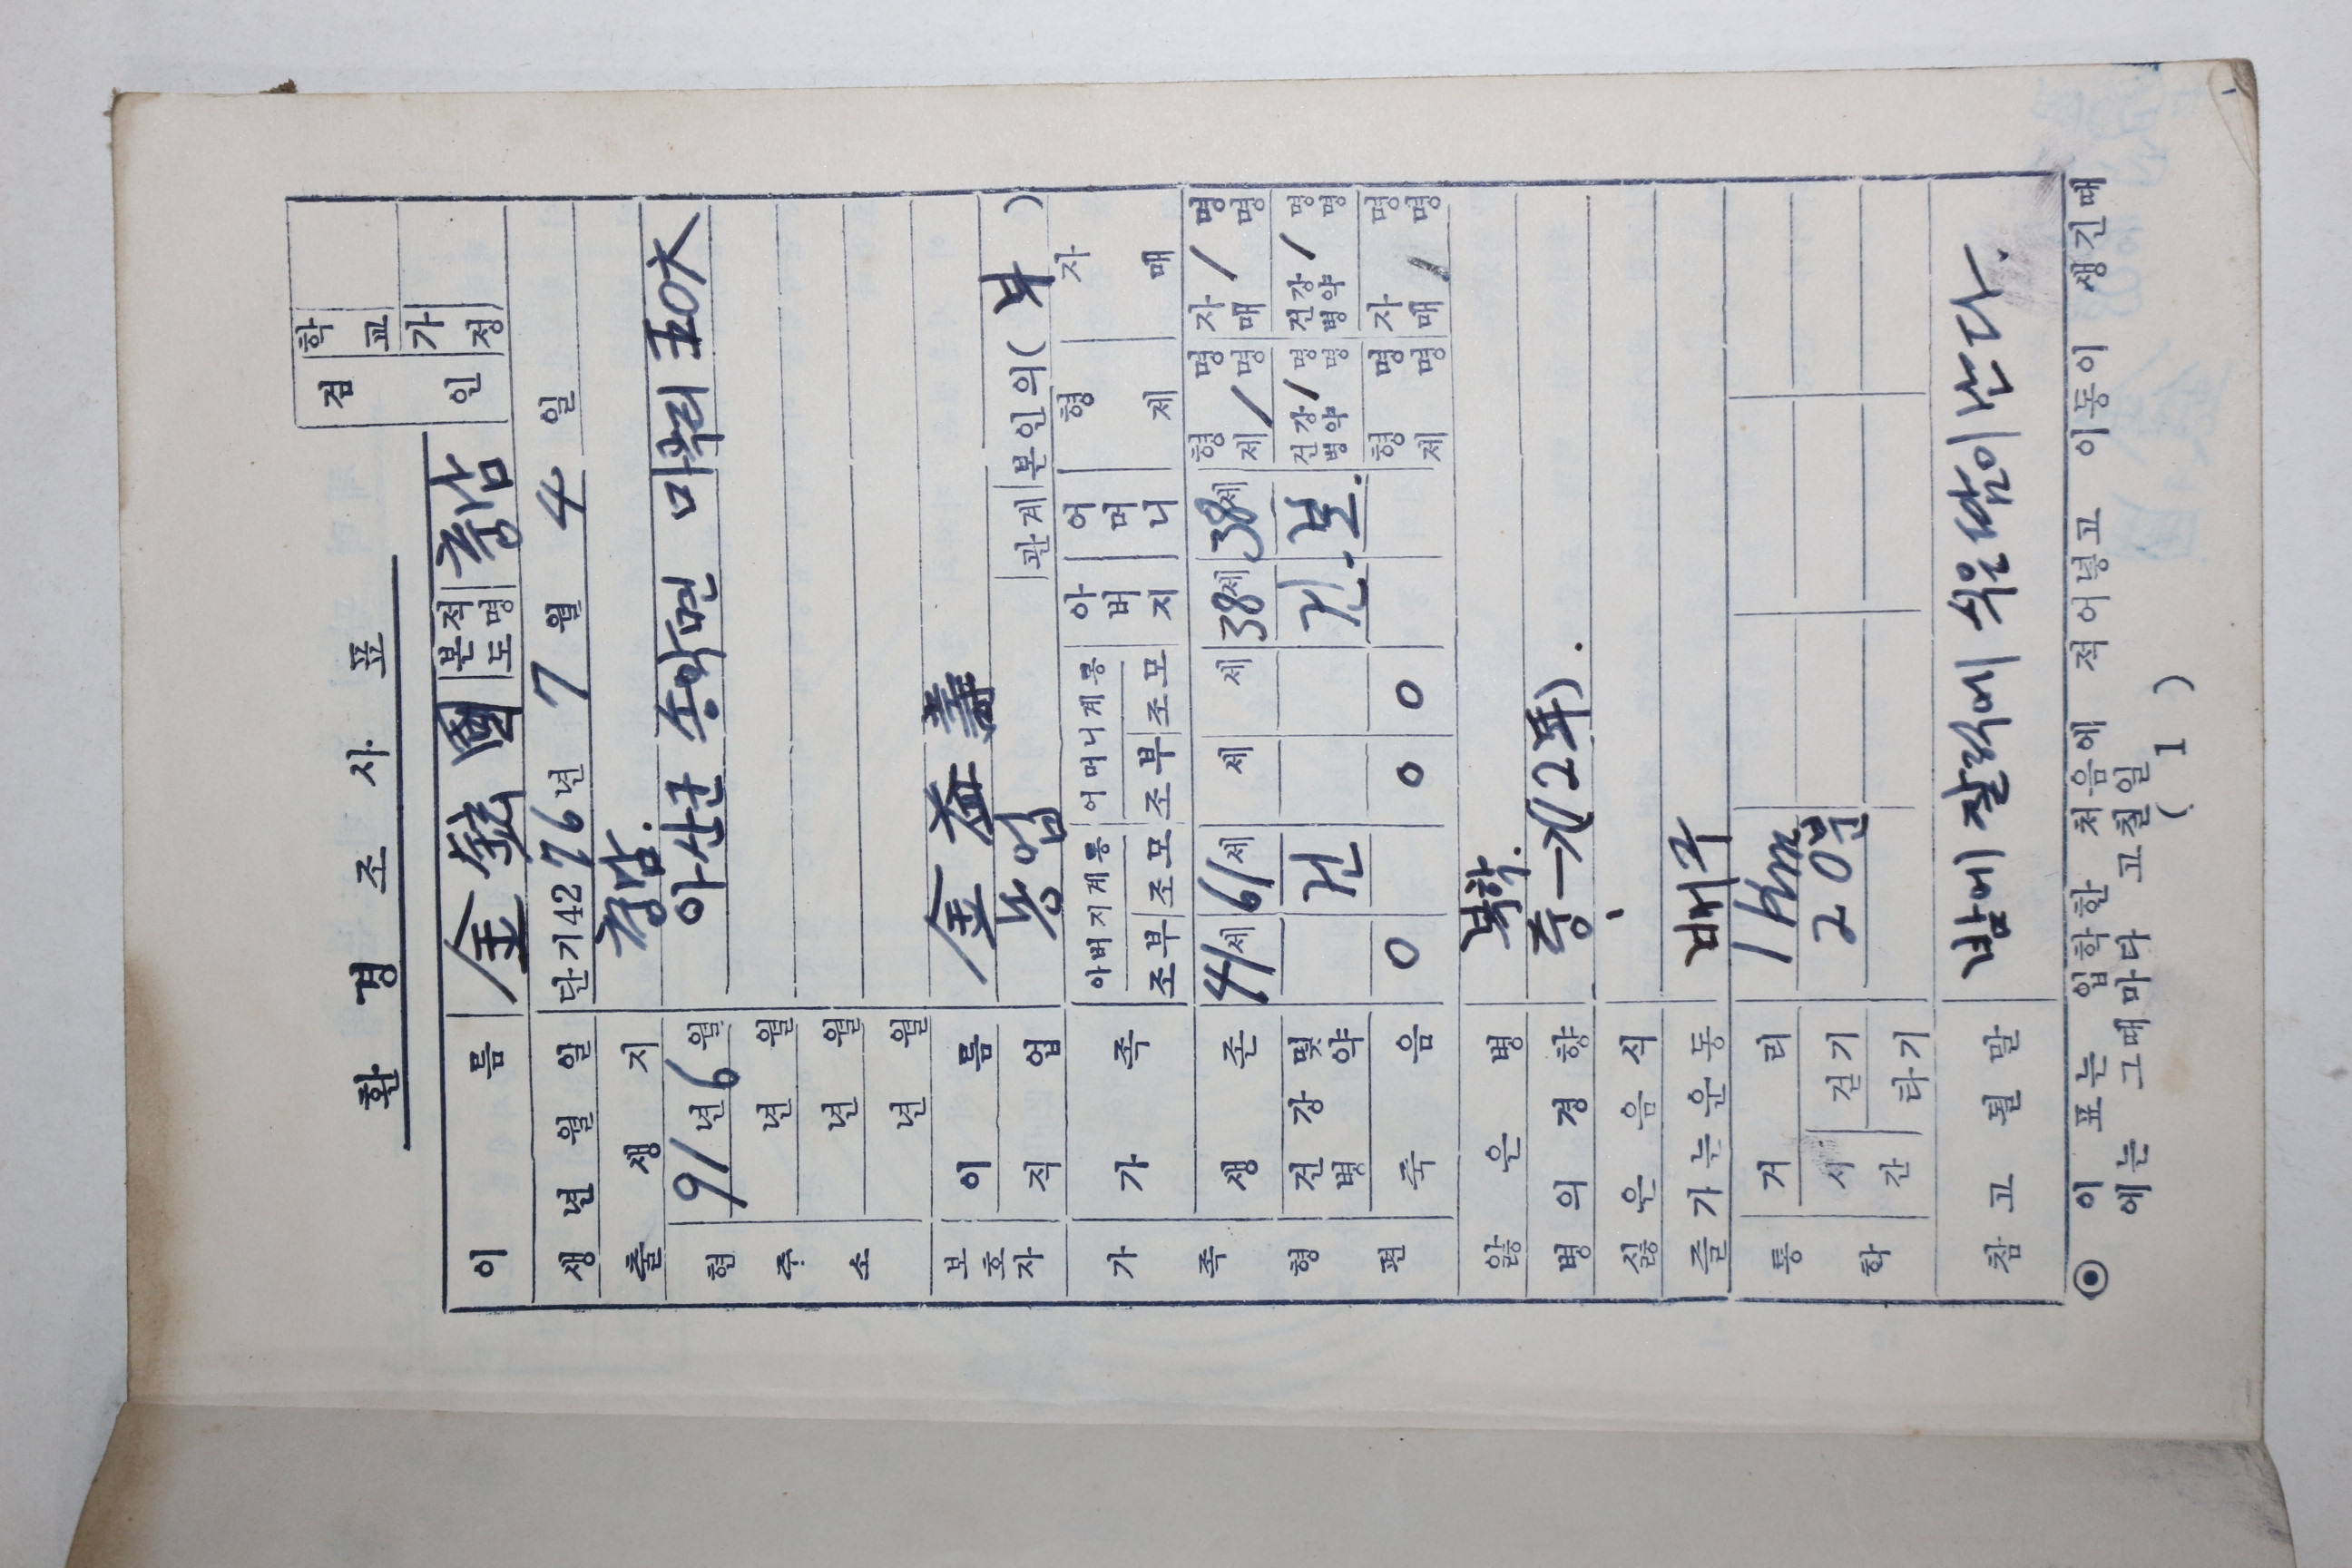 환경조사표
검인 학교
가정
이름 金鉉國 본적도명 충남
생년월일 단기4276년 7월 4일
출생지 충남.
현주소 91년6월 아산군 송악면 마곡리 五0六
년 월
년 월
년 월
보호자 이름 金益壽
직업 농업 관계 본인의( 부 )
가족형편 가족 아버지계통 어머니계통 아버지 어머니 형제 자매
조부 조모 조부 조모
생존 41세 61세 세 세 38세 38세 형 명 자 / 명
제 / 명 매 명
건강 및 건 건. 보. 건강 / 명 건강 / 명
병약 병약 명 병약 명
죽음 0 0 0 형 명 자 명
제 명 매 / 명
앓은병 복학.
병의 경향 중→(12年).
싫은 음식
즐가는운동 배구
통학 거리 1Km
시간 걷기 20분
타기
참고될말 밤에 잘적에 식은땀이 난다.
◉ 이 표는 입학한 처음에 적어넣고 이동이 생긴때
에는 그때마다 고칠일
( 1 )